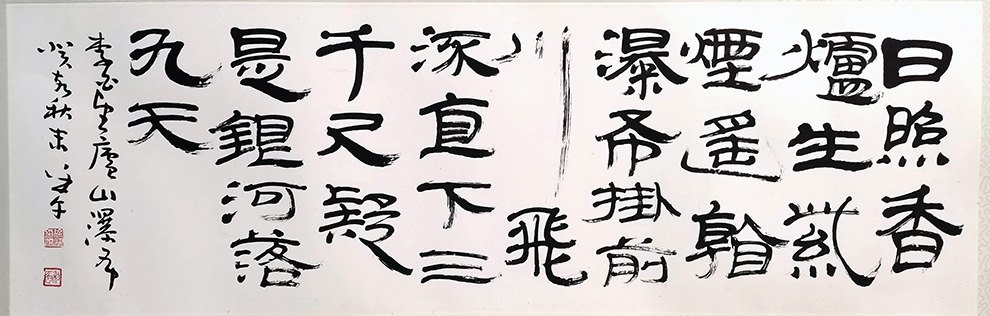 日照香
爐生紫
煙遙看
瀑布掛前
川飛
流直下三
千尺疑
是銀河落
九天
李白望廬山瀑布
癸卯秋末